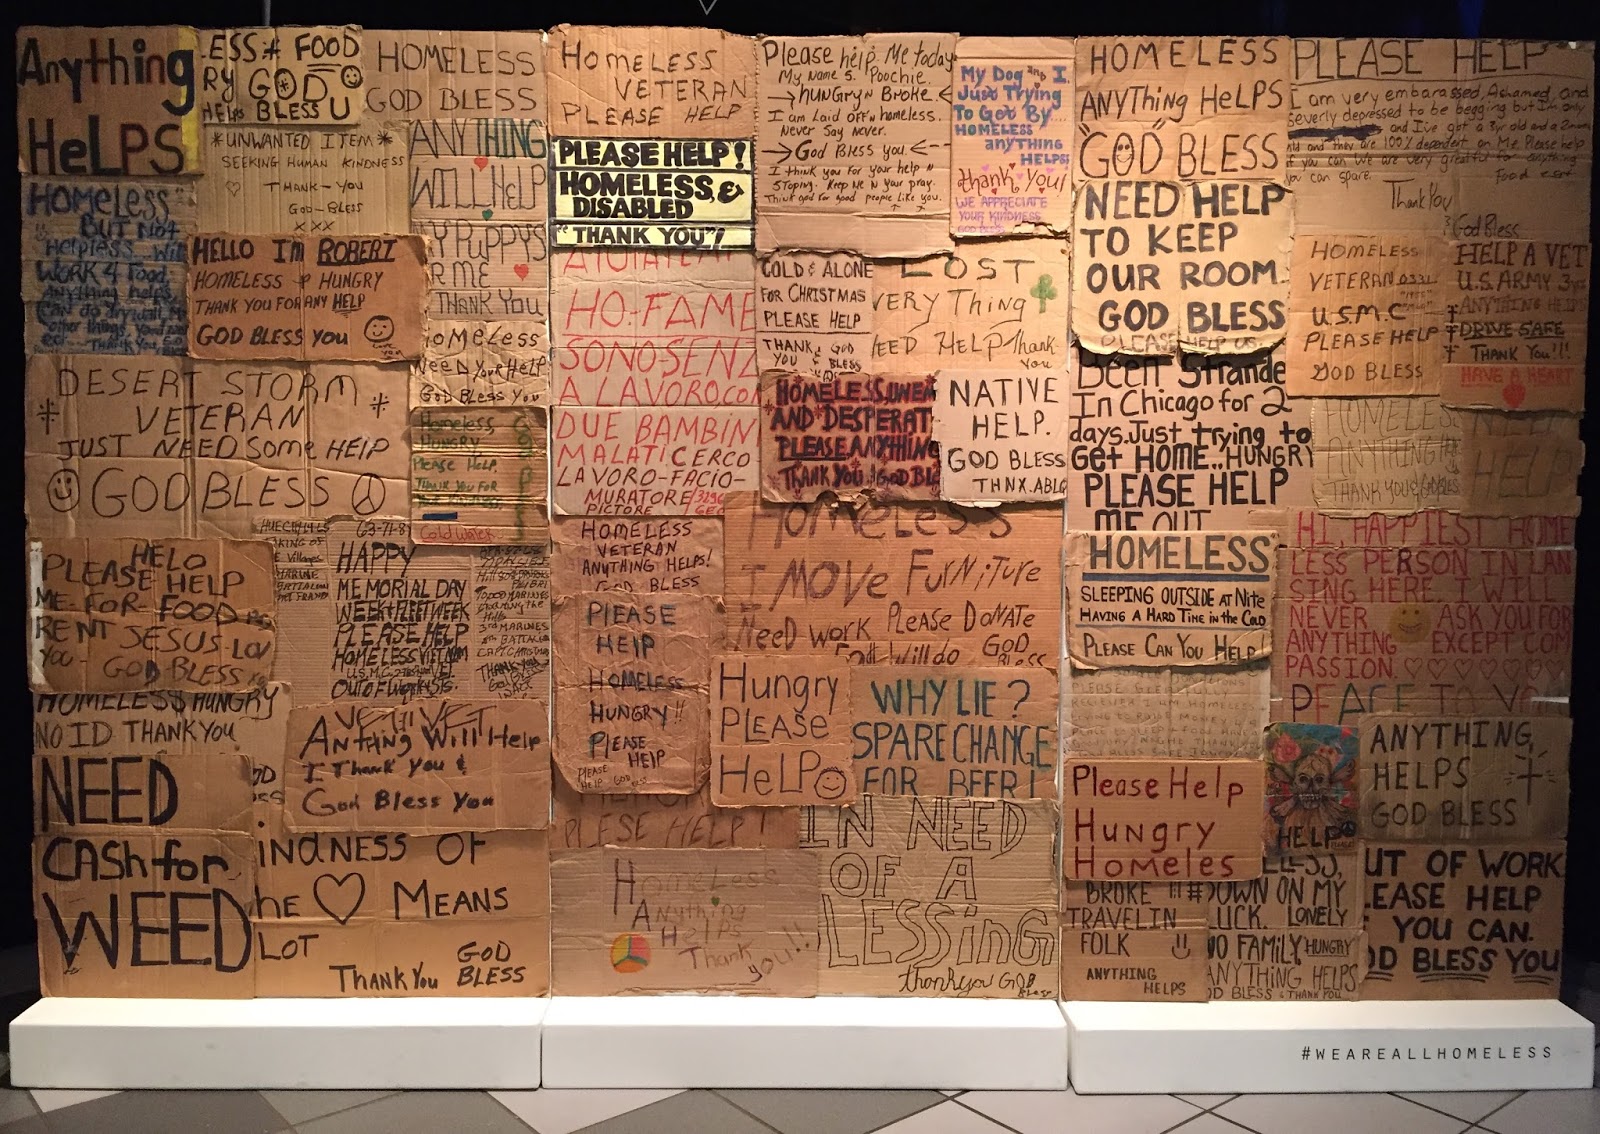 Anything
HeLPS
ESS # FOOD
RY GOD
HELPS BLESS U
HOMELESS
GOD BLESS
*UNWANTED ITEM*
SEEKING HUMAN KINDNESS
THANK-YOU
GOD-BLESS
XXX
ANYTHING
WILL HELP
MY PUPPYS
R ME
THANK YOU
HOMELESS
BUT Not
Helpless... Will
WORK 4 Food.
Anything helps
Can do drywall,
other things.
HELLO I'm ROBERT
HOMELESS & HUNGRY
THANK YOU FOR ANY HELP
GOD BLESS YOU
HOMELESS
NeeD YOUR HELP
GOD BLESS YOU
DESERT STORM
VETERAN
JUST NEED Some HELP
GOD BLESS
Homeless
HUNGRY
Please Help.
THANK YOU FOR
Cold Water
HELO
PLEASE HELP
ME-FOR-FOOD
RENT JESUS-LOV
YOU-GOD-BLESS
63-71-8
HAPPY
MEMORIAL DAY
WEEK & FLEET WEEK
PLEASE HELP
HOMELESS VIETNAM
OUT OF WORK
HOMELESS HUNGRY
NO ID THANK YOU
ANTHING Will Help
I Thank You &
God Bless You
NEED
CASH for
WEED
KINDNESS OF
THE ♡ MEANS
LOT
THANK YOU GOD
BLESS
HOMELESS
VETERAN
PLEASE HELP
PLEASE HELP!
HOMELESS &
DISABLED
"THANK YOU"!
AIUTATEMI
HO-FAME
SONO-SENZ
A LAVORO, CON
DUE BAMBIN
MALATI CERCO
LAVORO-FACIO-
MURATORE
PICTORE
Please help Me today.
My Name S. Poochie.
→ HUNGRY n Broke. ←
I am Laid OFF n homeless.
Never Say Never.
→ God Bless you. ←
I think you For your help n
STOPing. Keep Me N your pray.
Think god for good people like you.
My Dog and I
Just Trying
To Get By....
HOMELESS
anything
HELPS!
thank you!
WE APPRECIATE
YOUR KINDNESS
GOD BLESS
COLD & ALONE
FOR CHRISTMAS
PLEASE HELP
THANK GOD
YOU & BLESS
LOST
EVERYTHING
NEED HELP Thank
You
HOMELESS, UNEM
AND DESPERAT
PLEASE ANYTHING
THANK YOU & GOD BL
NATIVE
HELP.
GOD BLESS
THNX. ABLG
HOMELESS
VETERAN
ANYTHING HELPS!
GOD BLESS
Homeless
I Move FURNITURE
Need work Please DoNATE
Food Will do GOD
BLESS
PLEASE
HELP
HOMELESS
HUNGRY!!
PLEASE
HELP
Hungry
PLEASE
HeLP
WHY LIE?
SPARE CHANGE
FOR BEER!
PLESE HELP!
Homeless
Anything
Helps
Thank
you!!
IN NEED
OF A
LESSING
thank you GOD
Bless
HOMELESS
ANYTHING HELPS
"GOD" BLESS
NEED HELP
TO KEEP
OUR ROOM.
GOD BLESS
PLEASE HELP US.
PLEASE HELP
I am very embarassed, Ashamed, and
Severly depressed to be begging but I'm only
and I've got a 3yr old and a 2
old and they are 100% dependent on Me. Please help
if you can We are very greatful to anything
you can spare. Food
Thank You
God Bless
HOMELESS
VETERAN 0331
U.S.M.C
PLEASE HELP
GOD BLESS
HELP A VET
U.S. ARMY 3
ANYTHING HELPS
DRIVE SAFE
THANK YOU!!!
HAVE A HEART
Been Strande
In Chicago for 2
days. Just trying to
Get HOME.. HUNGRY
PLEASE HELP
ME OUT
HOMELESS
ANYTHING
THANK YOU & GOD BLESS
NEED
HELP
"HOMELESS"
SLEEPING OUTSIDE AT NITE
HAVING A HARD TIME IN THE COLD
PLEASE CAN YOU HELP!
HI, HAPPIEST HOME
LESS PERSON IN LAN
SING HERE. I WILL
NEVER ASK YOU FOR
ANYTHING EXCEPT COM
PASSION. ♡♡♡♡♡♡♡
PEACE TO YO
Please Help
Hungry
Homeles
HELP
ANYTHING
HELPS
GOD BLESS
BROKE
TRAVELIN
FOLK
ANYTHING
HELPS
#DOWN ON MY
LUCK. LONELY
NO FAMILY, HUNGRY
ANYTHING HELPS
GOD BLESS & THANK YOU
OUT OF WORK
LEASE HELP
F YOU CAN.
OD BLESS YOU
#WEAREALLHOMELESS